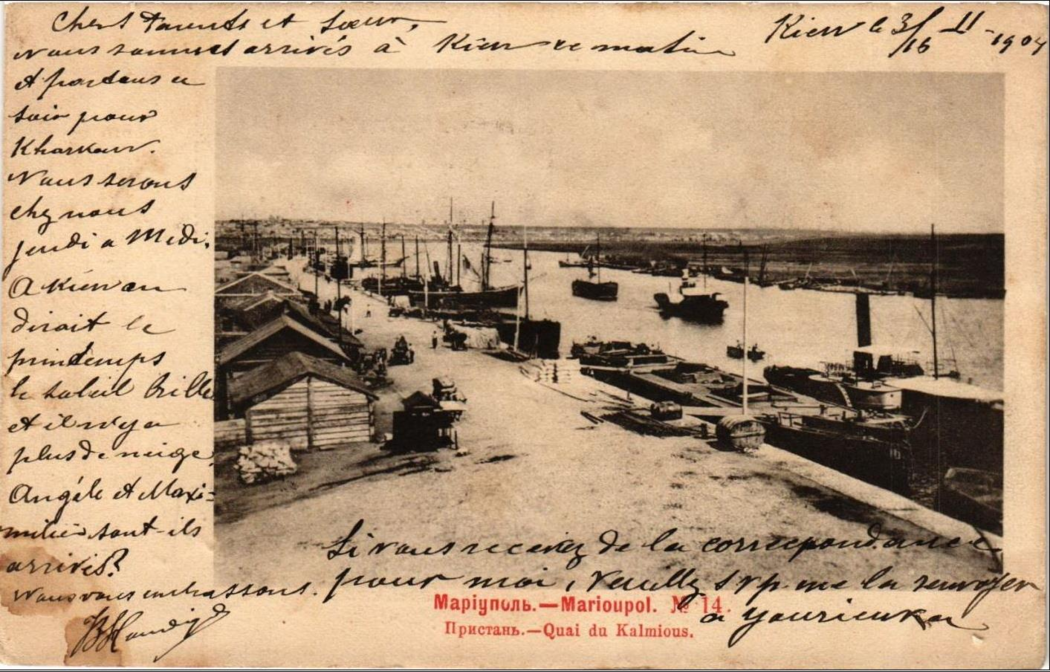 Kiew le 3/16 II - 1904
Chers Parents et Soeur,
nous sommes arrivés à Kiew ce matin
et partons ce
soir pour
Kharkow.
Nous serons
chez nous
jeudi a Midi.
A Kiew on
dirait le
printemps
le soleil brille
et il n'y a
plus de neige.
Angèle et Maxi=
milien sont-ils
arrivés?
Nous vous embrassons.
Si vous recevez de la correspondance
pour moi, veuillez svp me la renvoyer
à Yourievka
Маріуполь.—Marioupol. № 14.
Пристань.—Quai du Kalmious.